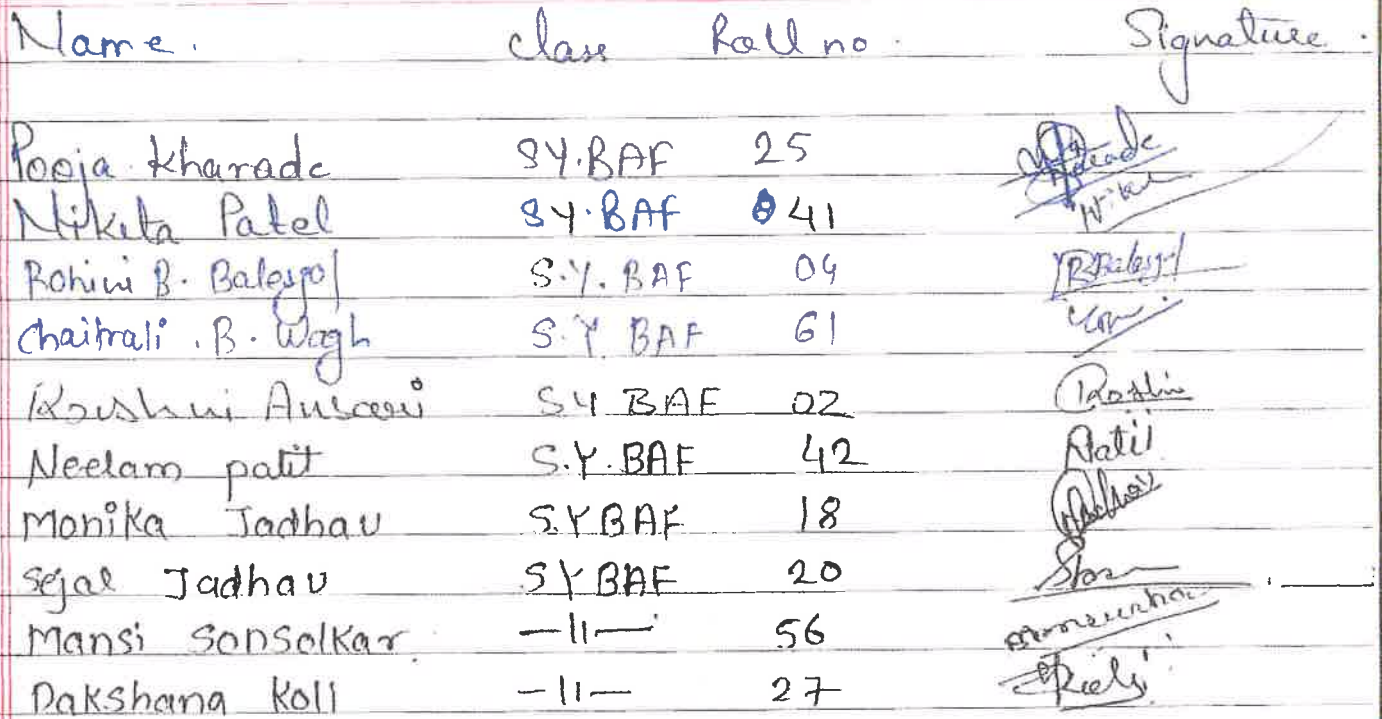 Name. Class Roll no. Signature.
Pooja Kharade SY.BAF 25
Nikita Patel SY.BAF 41
Rohini B. Balesgol S.Y. BAF 04 RBalesgol
Chaitrali .B. Wagh S.Y BAF 61
Roshni Ansari SY BAF 02 Roshni
Neelam patil S.Y. BAF 42 Patil
Monika Jadhav S.Y BAF 18 Jadhav
Sejal Jadhav SY BAF 20
Mansi Sonsolkar —11— 56
Dakshana Koli —11— 27